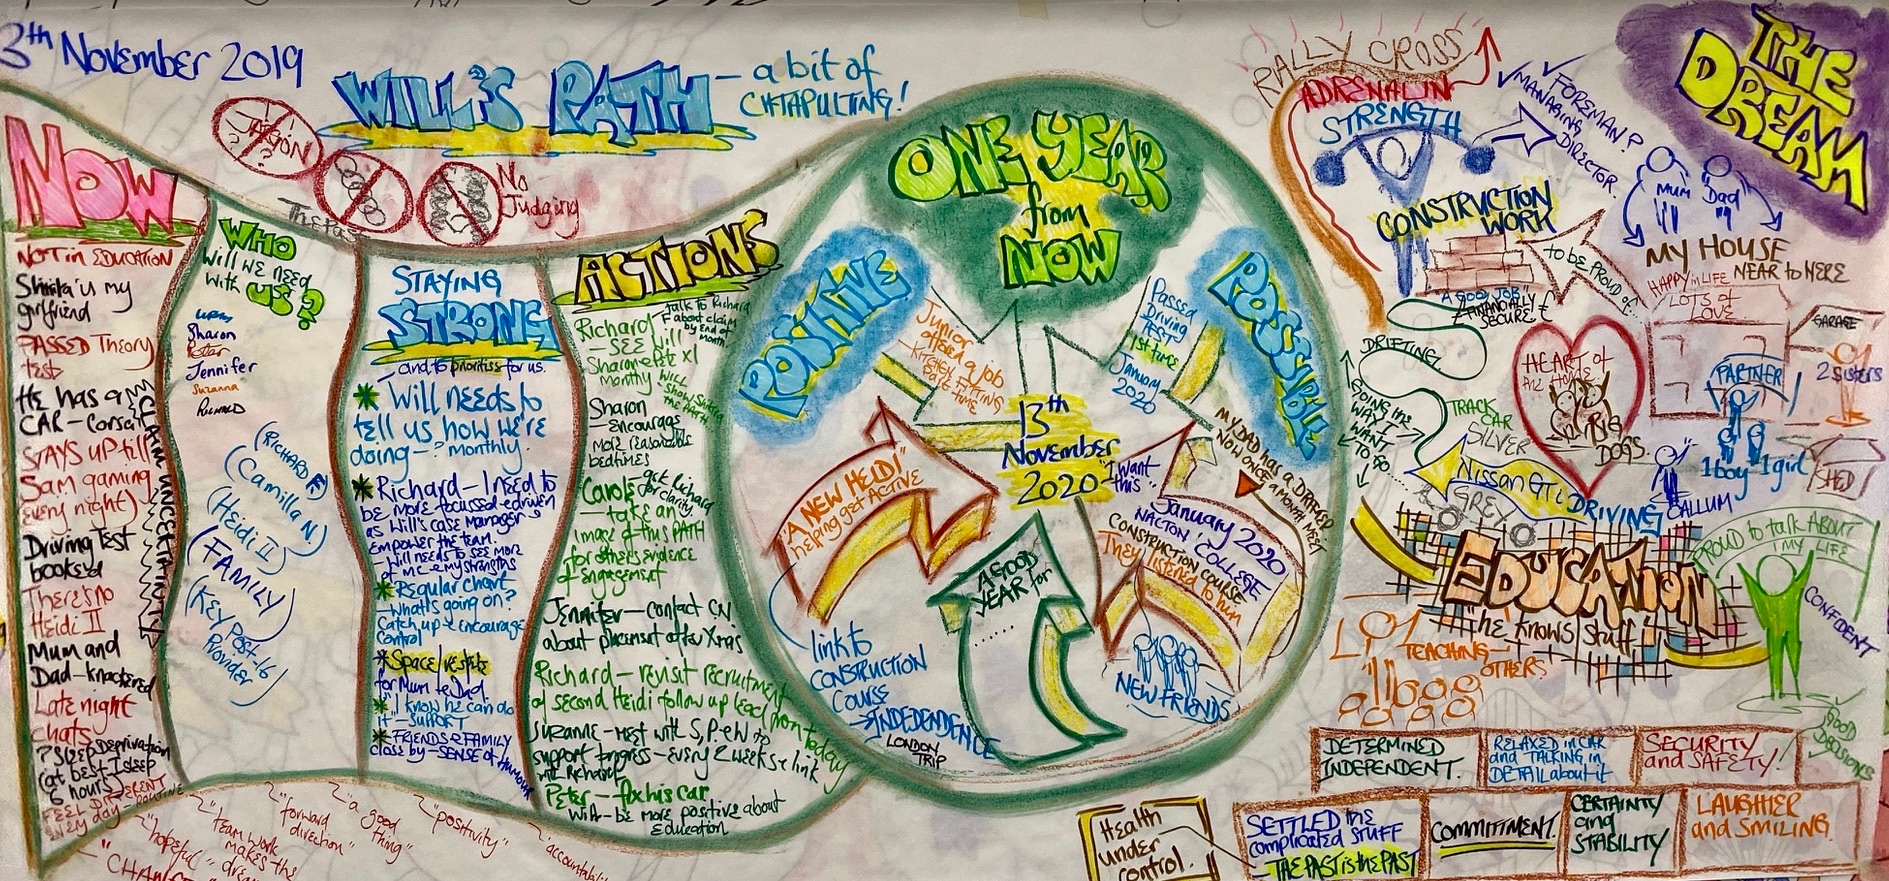 3th November 2019
WILL'S PATH – a bit of
CATAPULTING!
No
Judging
NOW
NOT in EDUCATION
my
girlfriend
PASSED Theory
test
He has a
CAR – Corsa
STAYS UP till
5am gaming
every night)
Driving Test
booked
There's no
Heidi II
Mum and
Dad – knackered
Late night
chats
? Sleep Deprivation
(at best I sleep
6 hours)
FEEL DIFFERENT
every day – ROUTINE
CLAIM UNCERTAINTY
WHO
Will we need
with US?
Sharon
Peter
Jennifer
Suzanna
Richard
(RICHARD F)
(Camilla N)
(Heidi II)
(FAMILY)
(Key Post-16
Provider)
STAYING
STRONG
– and to prioritise for us.
* Will needs to
tell us how we're
doing – ? monthly.
* Richard – I need to
be more focussed + driven
as Will's case manager
Empower the team.
Will needs to see more
of me + my strengths
* Regular chart
– What's going on?
Catch up + encourage
control
* Space/respite
for Mum + Dad.
* "I know he can do
it" – SUPPORT
* FRIENDS & FAMILY
close by – SENSE of HUMOUR
ACTIONS
Richard – talk to Richard
F about claim
by End of
month
– SEE Will
Sharon + Pete x1
monthly
Sharon
– encourage
more reasonable
bedtimes
Carole – get Richard
for clarity
– take an
image of this PATH
for others evidence
of engagement
Jennifer – contact CN
about placement after Xmas
Richard – revisit recruitment
of second Heidi follow up lead from today
Suzanne – meet with S, P + W to
support progress – every 2 weeks + link
with Richard
Peter – fix his car
Will – be more positive about
Education
ONE YEAR
from
NOW
POSITIVE
POSSIBLE
Junior
offered a job
– KITCHEN FITTING
Part time
Passed
Driving
TEST
1st time
January
2020
13th
November
2020
"I want
this"
MY DAD HAS a DRAGGED
NOW ONCE A MONTH MEET
"A NEW HEIDI"
helping get ACTIVE
A GOOD
YEAR for
January 2020
NACTON 'COLLEGE
CONSTRUCTION COURSE
They listened to him
link to
CONSTRUCTION
COURSE
INDEPENDENCE
LONDON
TRIP
NEW FRIENDS
THE
DREAM
RALLY CROSS
ADRENALIN
STRENGTH
FOREMAN?
MANAGING
DIRECTOR.
Mum
Dad
CONSTRUCTION
WORK
TO BE PROUD of...
A GOOD JOB
FINANCIALLY
SECURE
MY HOUSE
NEAR to HERE
HAPPY in LIFE
LOTS of
LOVE
GARAGE
2 sisters
PARTNER
1 boy – 1 girl
SHED
CALLUM
HEART of
THE HOME
BIG
DOGS
DRIFTING
GOING the
WAY I
WANT
TO GO
TRACK
CAR
SILVER
Nissan GTi
GREY
DRIVING
EDUCATION
"he knows stuff"
TEACHING
OTHERS
PROUD to talk ABOUT
MY LIFE
CONFIDENT
GOOD
DECISIONS
DETERMINED
INDEPENDENT.
RELAXED in CAR
and TALKING in
DETAIL about it
SECURITY
and SAFETY!
Health
under
control.
SETTLED the
complicated STUFF
– THE PAST is the PAST
COMMITMENT.
CERTAINTY
and
STABILITY
LAUGHTER
and SMILING
"hopeful"
"team work
makes the
"forward
direction"
"a good
thing"
"positivity"